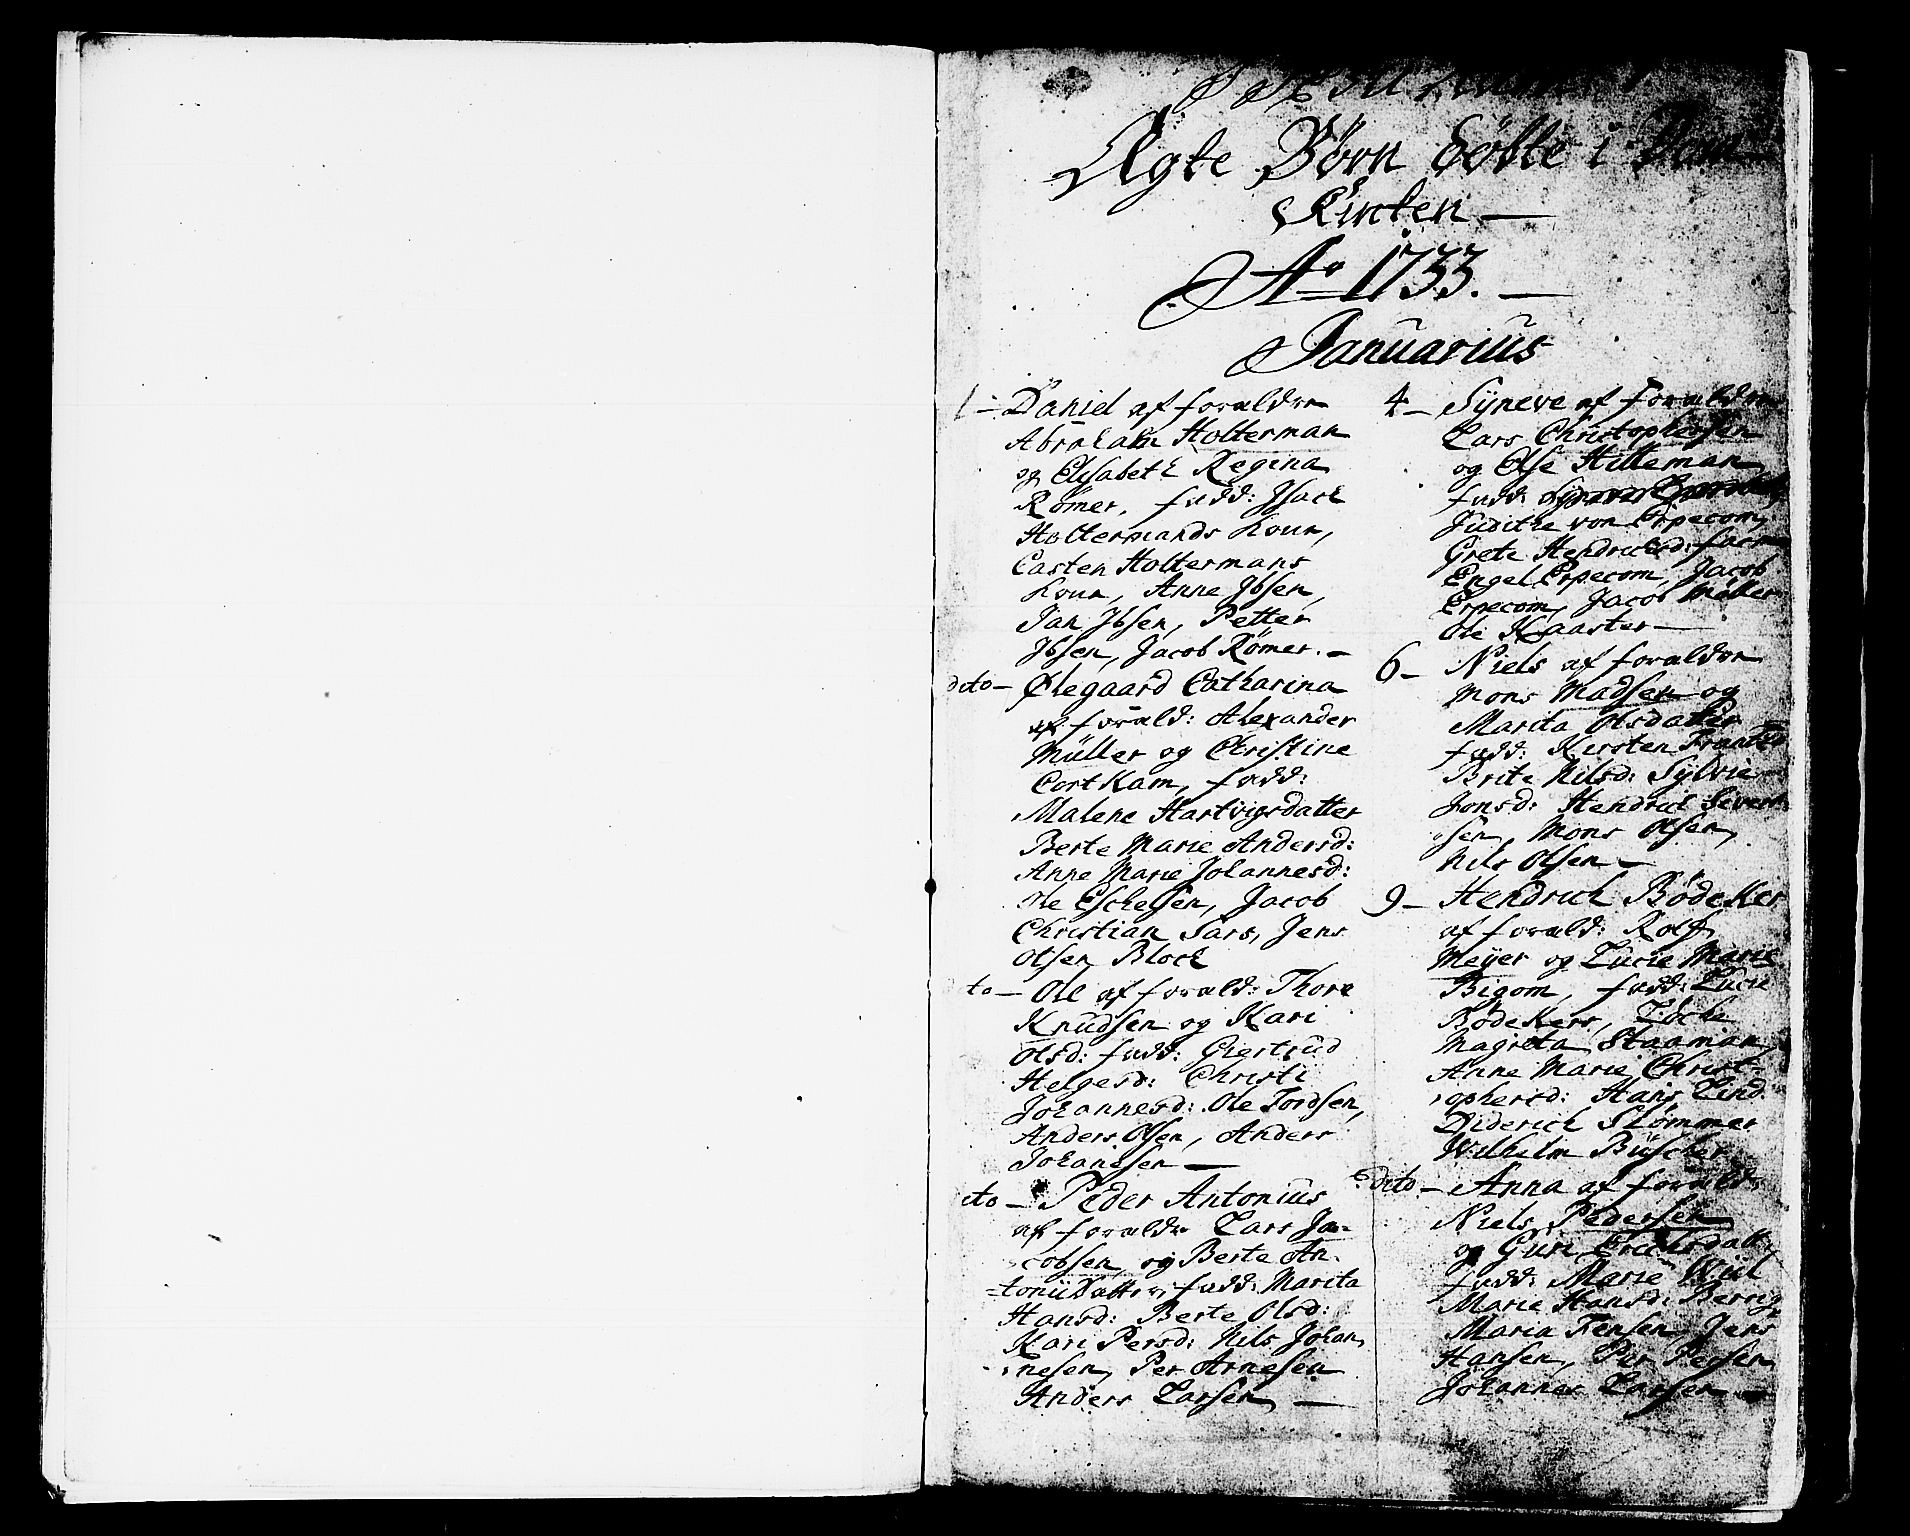 Ægte Børn Døbte i Dom
Kircken —
Ao 1733. —
Januarius
1 — Daniel af forældre
Abraham Holterman
og Elisabeth Regina
Rømer, fadd: Isach
Holtermands Koun,
Casten Holtermans
Koun, Anne Ibsen,
Jan Ibsen, Petter
Ibsen, Jacob Rømer. —
dito — Ølegaard Catharina
af foræld: Alexander
Müller og Christine
Cort Kam, fadd:
Malene Hartvigsdatter
Berte Marie Andersd:
Anne Marie Johannesd:
Ole Eschelsen, Jacob
Christian Sars, Jens
Olsen Block
to — Ole af foræld: Thore
Knudsen og Kari
Olsd: fadd: Giertrud
Helgesd: Christi
Johannesd: Ole Tordsen,
Anders Olsen, Anders
Johansen —
ito — Peder Antonius
af forældr Lars Ja-
cobsen og Berte An-
=tonii Datter, fadd: Marita
Hansd: Berte Olsd:
Kari Persd: Nils Johan
nesen, Per Arnesen
Anders Larsen —
4 — Syneve af forældre
Lars Christophersen
og Else Hilleman
fadd: Syneve
Judithe von Erpecom,
Grete Hendrichsd:
Engel Erpecom, Jacob
Erpecom, Jacob Møller
Ole Kaaster —
6 — Niels af forældre
Mons Madsen og
Marita Olsdatter
fadd: Kersten Frantzd
Brite Nilsd: Sylvie
Jonsd: Hendrich Siver
sen, Mons Olsen,
Nils Olsen —
9 — Hendrich Bødeker
af foræld: Rolf
Meyer og Lucie Marie
Bigom, fadd: Lucie
Bødekers,
Magreta Staaman,
Anne Marie Christ-
ophersd: Hans Lind
Diderich Slømmer
Wilhelm Büscher
dito — Anna af foræld:
Niels Pedersen
og Guri Erichsdatt
fadd: Marie Wiel
Marie Hansd:
Maria Jensen, Jens
Hansen, Per Persen
Johannes Larsen —